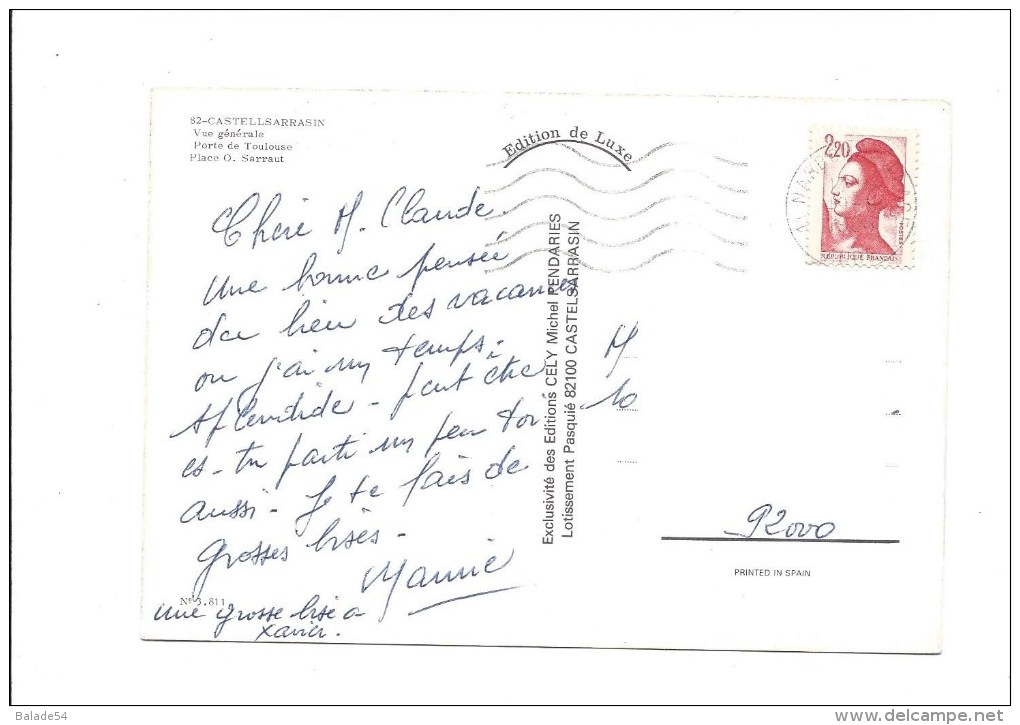 82-CASTELLSARRASIN
Vue générale
Porte de Toulouse
Place O. Sarraut
Edition de Luxe
2,20
REPUBLIQUE FRANCAISE
Chère M. Claude
Une bonne pensée
du lieu des vacances
ou j'ai un temps
splendide - peut être
es-tu parti un peu toi
aussi - Je te fais de
grosses bises -
Mannie
Une grosse bise a
Xavier.
N° 3.811
Exclusivité des Editions CELY Michel PENDARIES
Lotissement Pasquié 82100 CASTELSARRASIN
M
10
92000
PRINTED IN SPAIN
Balade54
www.delcampe.net